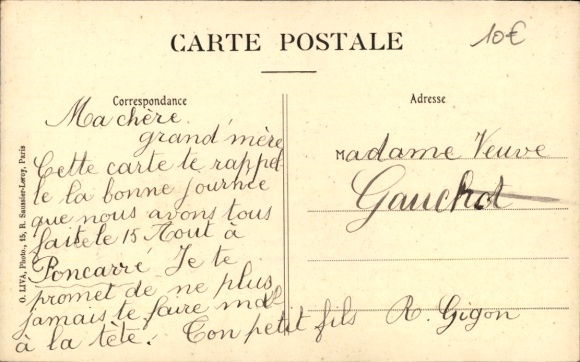 CARTE POSTALE
10€
Correspondance
Adresse
Ma chère
grand'mère
Cette carte te rappel-
le la bonne journée
que nous avons tous
faite le 15 Aout à
Poncarré Je te
promet de ne plus
jamais te faire mal
à la tête. Ton petit fils R. Gigon
Madame Veuve
Gauchot
O. LIVA, Photo., 15, R. Saunier-Leroy, Paris